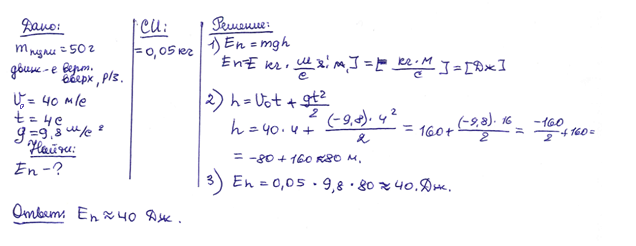 Дано:
m пули = 50 г
движ-е верт.
вверх, р/з.
V₀ = 40 м/с
t = 4 с
g = 9,8 м/с²
Найти:
Eп - ?
СИ:
= 0,05 кг
Решение:
1) Eп = mgh
Eп = [кг · м/с² · м] = [кг · м/с] = [Дж]
2) h = V₀t + gt²/2
h = 40 · 4 + (-9,8) · 4²/2 = 160 + (-9,8) · 16/2 = -160/2 + 160 =
= -80 + 160 ≈ 80 м.
3) Eп = 0,05 · 9,8 · 80 ≈ 40 Дж.
Ответ: Eп ≈ 40 Дж.